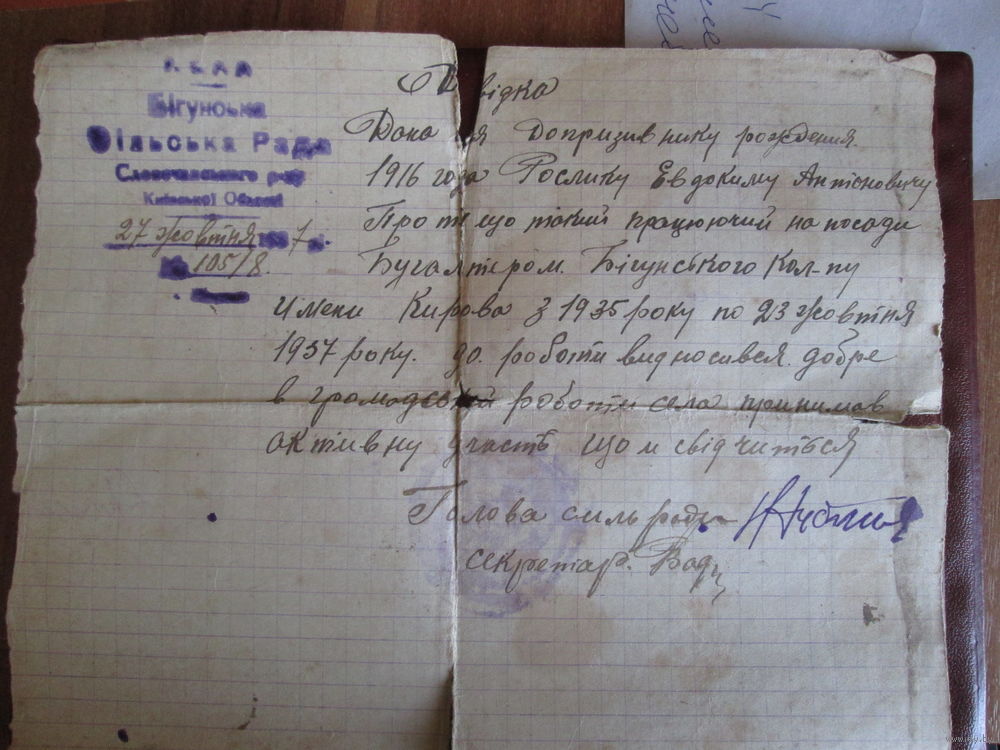 Бігунська
Сільська Рада
Словечанського р-ну
Київської Області
27 жовтня 7
105/8.
відка
Дана ця Допризивнику рождения
1916 года Рослику Евдокиму Антоновичу
Про те що такий працюючий на посади
Бугалтером. Бігунського Кол-пу
имени Кирова з 1935 року по 23 жовтня
1937 року. до. роботи видносився. добре
в громадській роботи села принимав
активну участь що и свідчиться
Голова сильради
секретар.